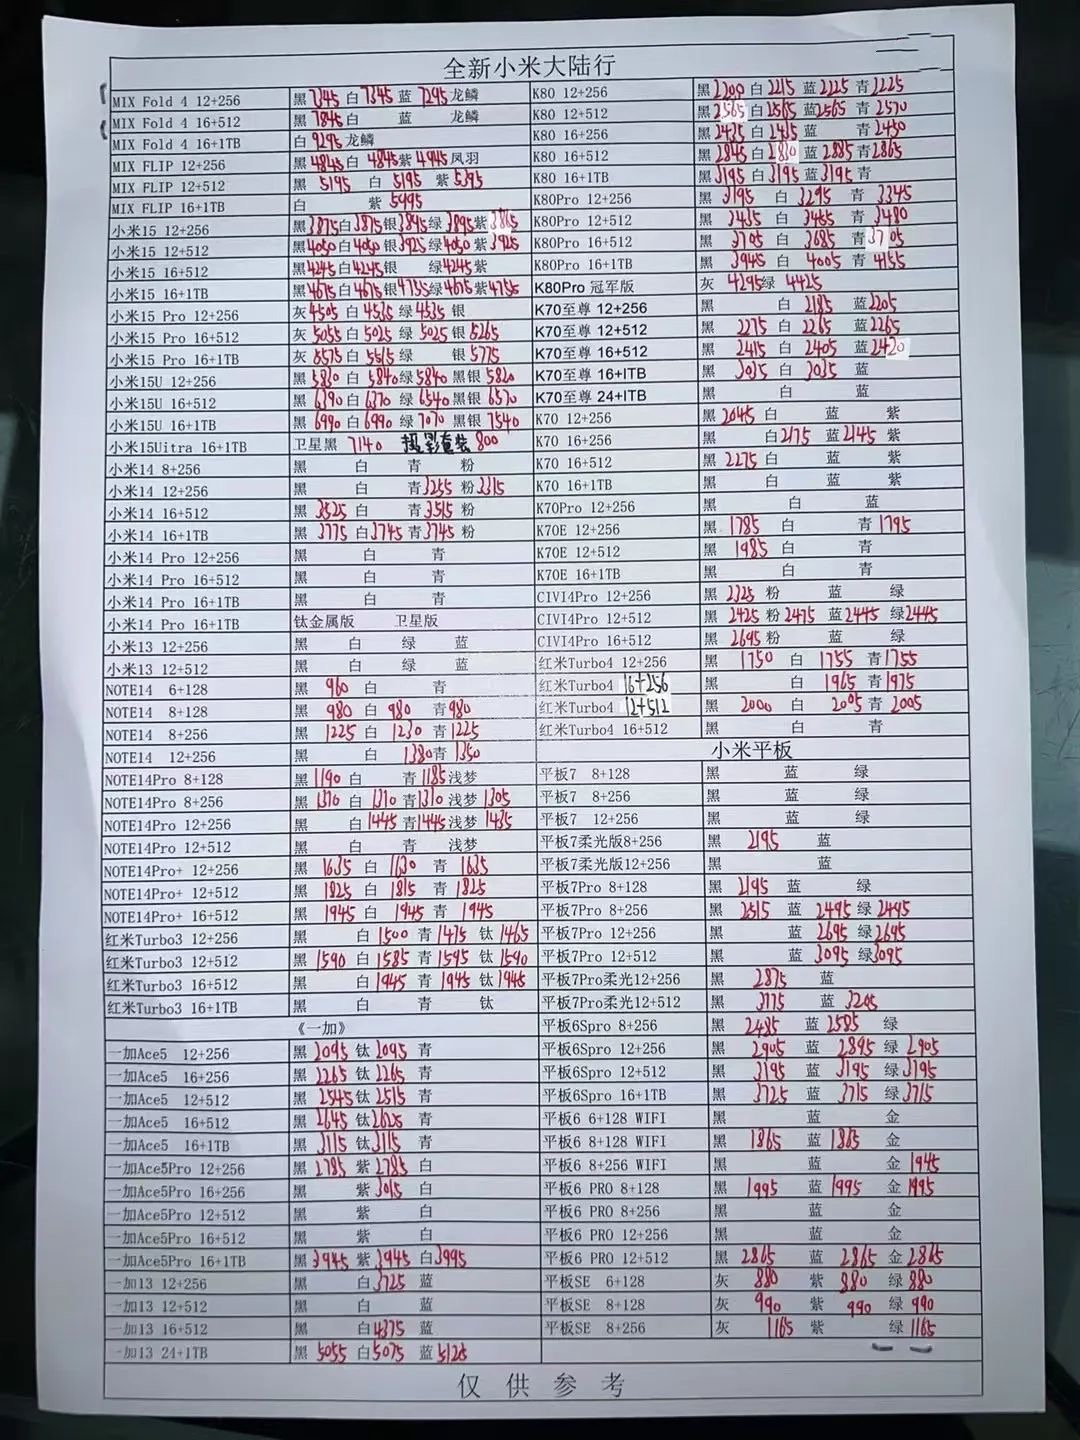 全新小米大陆行
MIX Fold 4 12+256 黑 7345 白 7345 蓝 7295 龙鳞
MIX Fold 4 16+512 黑 7845 白 蓝 龙鳞
MIX Fold 4 16+1TB 白 9295 龙鳞
MIX FLIP 12+256 黑 4845 白 4845 紫 4945 凤羽
MIX FLIP 12+512 黑 5195 白 5195 紫 5395
MIX FLIP 16+1TB 白 紫 5995
小米15 12+256 黑 3875 白 3875 银 3845 绿 3895 紫 3865
小米15 12+512 黑 4050 白 4050 银 3925 绿 4050 紫 3925
小米15 16+512 黑 4245 白 4245 银 绿 4245 紫
小米15 16+1TB 黑 4675 白 4675 银 4755 绿 4675 紫 4755
小米15 Pro 12+256 灰 4505 白 4535 绿 4535 银
小米15 Pro 16+512 灰 5055 白 5025 绿 5025 银 5265
小米15 Pro 16+1TB 灰 5575 白 5515 绿 银 5775
小米15U 12+256 黑 5830 白 5840 绿 5840 黑银 5820
小米15U 16+512 黑 6390 白 6370 绿 6540 黑银 6570
小米15U 16+1TB 黑 6990 白 6990 绿 7070 黑银 7540
小米15Uitra 16+1TB 卫星黑 7140 摄影套装 800
小米14 8+256 黑 白 青 粉
小米14 12+256 黑 白 青 3255 粉 3315
小米14 16+512 黑 3525 白 青 3515 粉
小米14 16+1TB 黑 3775 白 3745 青 3745 粉
小米14 Pro 12+256 黑 白 青
小米14 Pro 16+512 黑 白 青
小米14 Pro 16+1TB 黑 白 青
小米14 Pro 16+1TB 钛金属版 卫星版
小米13 12+256 黑 白 绿 蓝
小米13 12+512 黑 白 绿 蓝
NOTE14 6+128 黑 960 白 青
NOTE14 8+128 黑 980 白 980 青 980
NOTE14 8+256 黑 1225 白 1230 青 1225
NOTE14 12+256 黑 白 1380 青 1350
NOTE14Pro 8+128 黑 1190 白 青 1185 浅梦
NOTE14Pro 8+256 黑 1310 白 1310 青 1310 浅梦 1305
NOTE14Pro 12+256 黑 白 1445 青 1445 浅梦 1435
NOTE14Pro 12+512 黑 白 青 浅梦
NOTE14Pro+ 12+256 黑 1635 白 1630 青 1635
NOTE14Pro+ 12+512 黑 1825 白 1815 青 1825
NOTE14Pro+ 16+512 黑 1945 白 1945 青 1945
红米Turbo3 12+256 黑 白 1500 青 1475 钛 1465
红米Turbo3 12+512 黑 1590 白 1585 青 1595 钛 1590
红米Turbo3 16+512 黑 白 1945 青 1945 钛 1945
红米Turbo3 16+1TB 黑 白 青 钛
《一加》
一加Ace5 12+256 黑 2095 钛 2095 青
一加Ace5 16+256 黑 2265 钛 2265 青
一加Ace5 12+512 黑 2545 钛 2515 青
一加Ace5 16+512 黑 2645 钛 2625 青
一加Ace5 16+1TB 黑 3115 钛 3115 青
一加Ace5Pro 12+256 黑 2785 紫 2785 白
一加Ace5Pro 16+256 黑 紫 3015 白
一加Ace5Pro 12+512 黑 紫 白
一加Ace5Pro 16+512 黑 紫 白
一加Ace5Pro 16+1TB 黑 3945 紫 3945 白 3995
一加13 12+256 黑 白 3725 蓝
一加13 12+512 黑 白 蓝
一加13 16+512 黑 白 4375 蓝
一加13 24+1TB 黑 5055 白 5075 蓝 5125
K80 12+256 黑 2200 白 2215 蓝 2225 青 2225
K80 12+512 黑 2565 白 2565 蓝 2565 青 2570
K80 16+256 黑 2435 白 2435 蓝 青 2450
K80 16+512 黑 2845 白 2830 蓝 2885 青 2865
K80 16+1TB 黑 3195 白 3195 蓝 3195 青
K80Pro 12+256 黑 3195 白 3295 青 3345
K80Pro 12+512 黑 3435 白 3465 青 3480
K80Pro 16+512 黑 3705 白 3685 青 3705
K80Pro 16+1TB 黑 3945 白 4005 青 4155
K80Pro 冠军版 灰 4295 绿 4425
K70至尊 12+256 黑 白 2185 蓝 2205
K70至尊 12+512 黑 2275 白 2265 蓝 2265
K70至尊 16+512 黑 2415 白 2405 蓝 2420
K70至尊 16+ITB 黑 3035 白 3035 蓝
K70至尊 24+ITB 黑 白 蓝
K70 12+256 黑 2045 白 蓝 紫
K70 16+256 黑 白 2175 蓝 2145 紫
K70 16+512 黑 2275 白 蓝 紫
K70 16+1TB 黑 白 蓝 紫
K70Pro 12+256 黑 白 蓝
K70E 12+256 黑 1785 白 青 1795
K70E 12+512 黑 1985 白 青
K70E 16+1TB 黑 白 青
CIVI4Pro 12+256 黑 2325 粉 蓝 绿
CIVI4Pro 12+512 黑 2425 粉 2475 蓝 2445 绿 2445
CIVI4Pro 16+512 黑 2695 粉 蓝 绿
红米Turbo4 12+256 黑 1750 白 1755 青 1755
红米Turbo4 16+256 黑 白 1965 青 1975
红米Turbo4 12+512 黑 2000 白 2005 青 2005
红米Turbo4 16+512 黑 白 青
小米平板
平板7 8+128 黑 蓝 绿
平板7 8+256 黑 蓝 绿
平板7 12+256 黑 蓝 绿
平板7柔光版8+256 黑 2195 蓝
平板7柔光版12+256 黑 蓝
平板7Pro 8+128 黑 2195 蓝 绿
平板7Pro 8+256 黑 2515 蓝 2495 绿 2495
平板7Pro 12+256 黑 蓝 2695 绿 2695
平板7Pro 12+512 黑 蓝 3095 绿 3095
平板7Pro柔光12+256 黑 2875 蓝
平板7Pro柔光12+512 黑 3175 蓝 3205
平板6Spro 8+256 黑 2485 蓝 2585 绿
平板6Spro 12+256 黑 2905 蓝 2895 绿 2905
平板6Spro 12+512 黑 3195 蓝 3195 绿 3195
平板6Spro 16+1TB 黑 3725 蓝 3715 绿 3715
平板6 6+128 WIFI 黑 蓝 金
平板6 8+128 WIFI 黑 1865 蓝 1865 金
平板6 8+256 WIFI 黑 蓝 金 1945
平板6 PRO 8+128 黑 1995 蓝 1995 金 1995
平板6 PRO 8+256 黑 蓝 金
平板6 PRO 12+256 黑 蓝 金
平板6 PRO 12+512 黑 2865 蓝 2865 金 2865
平板SE 6+128 灰 880 紫 880 绿 880
平板SE 8+128 灰 990 紫 990 绿 990
平板SE 8+256 灰 1165 紫 绿 1165
仅供参考